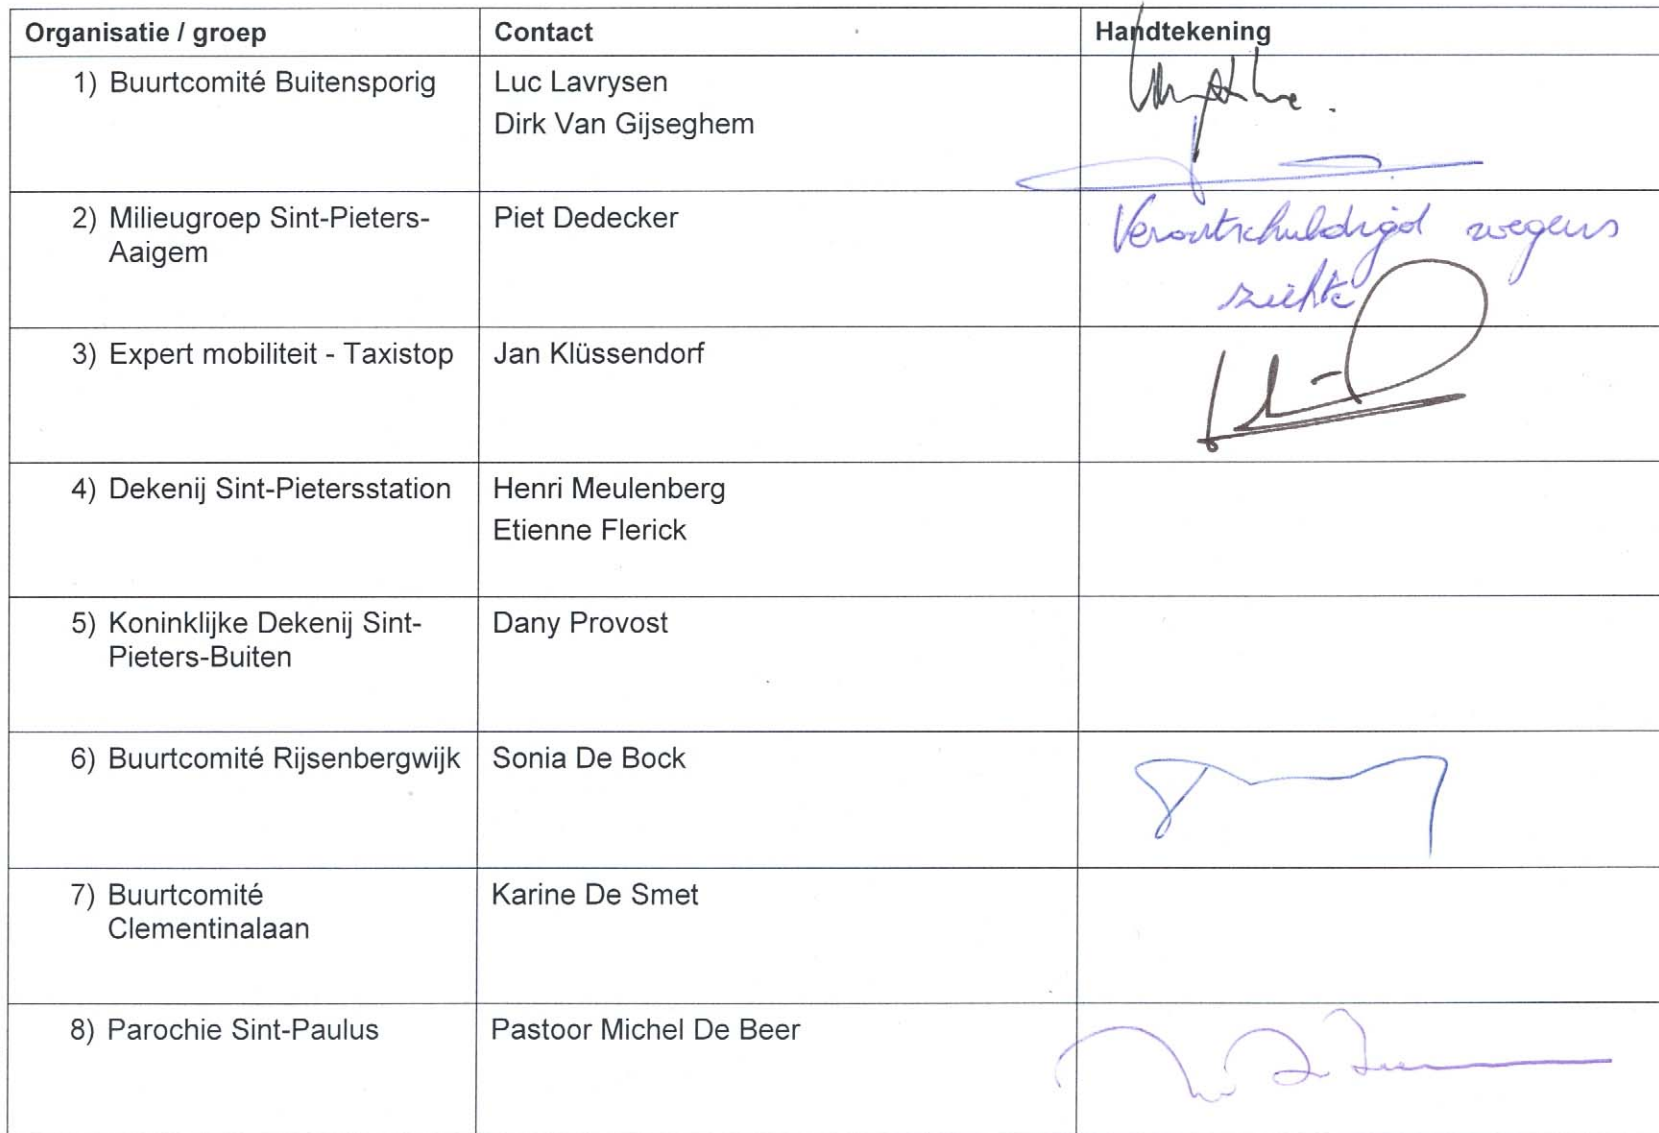 Organisatie / groep Contact Handtekening
1) Buurtcomité Buitensporig Luc Lavrysen
Dirk Van Gijseghem
2) Milieugroep Sint-Pieters- Piet Dedecker Verontschuldigd wegens
Aaigem ziekte
3) Expert mobiliteit - Taxistop Jan Klüssendorf
4) Dekenij Sint-Pietersstation Henri Meulenberg
Etienne Flerick
5) Koninklijke Dekenij Sint- Dany Provost
Pieters-Buiten
6) Buurtcomité Rijsenbergwijk Sonia De Bock
7) Buurtcomité Karine De Smet
Clementinalaan
8) Parochie Sint-Paulus Pastoor Michel De Beer